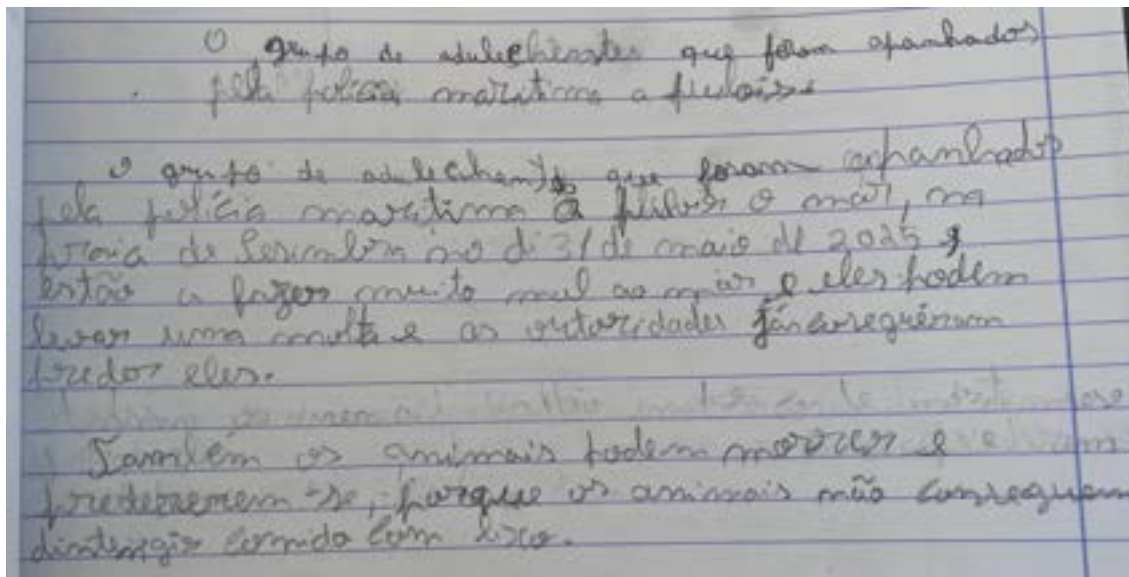 O grupo de adulechentes que foram apanhados
pela polícia marítima a puluir.
O grupo de adulechentes que foram apanhados
pela polícia marítima a puluir o mar, na
praia de Sesimbra no di 31 de maio de 2025,
estão a fazer muito mal ao mar e eles podem
levar uma multa e as autoridades já
eles.
Também os animais podem morrer e
-se, porque os animais não conseguem
comida com lixo.